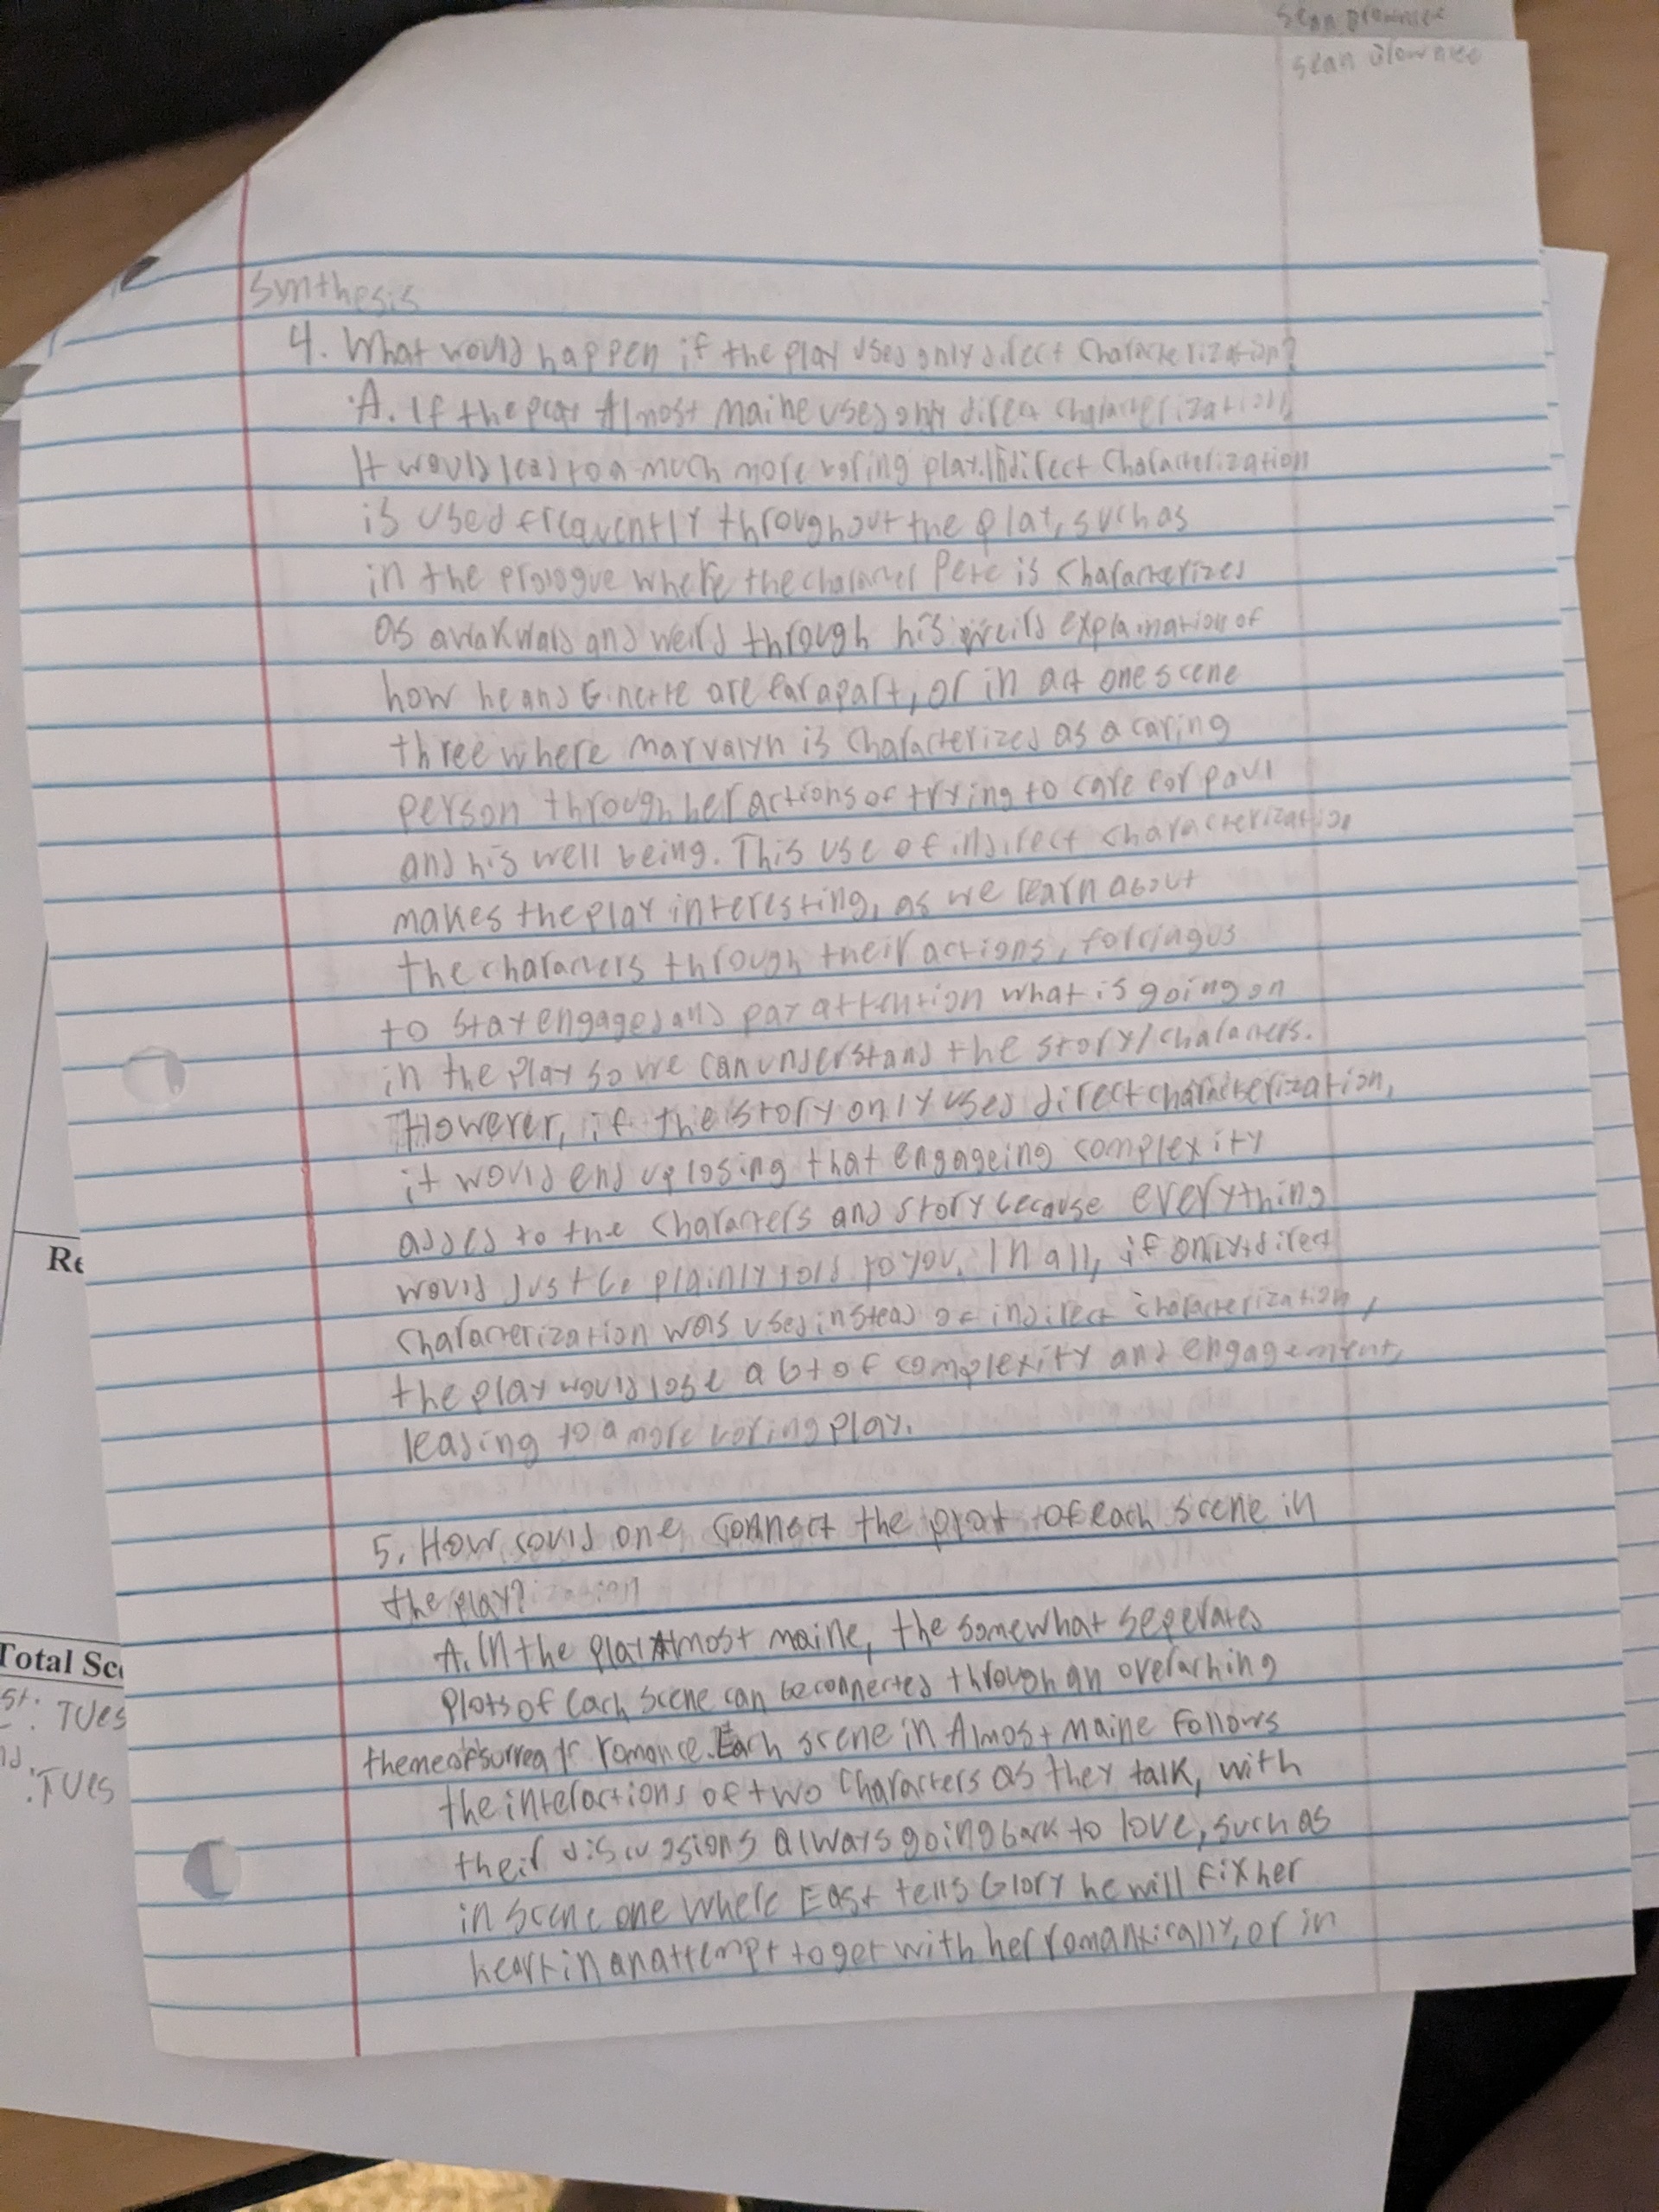 Sean Brownlee
Sean Brownlee
Synthesis
4. What would happen if the play used only direct Characterization?
A. If the play Almost Maine used only direct characterization,
It would lead to a much more boring play. Indirect Characterization
is used frequently throughout the play, such as
in the prologue where the character Pete is characterized
as awakward and weird through his weird explaination of
how he and Ginette are far apart, or in act one scene
three where marvalyn is characterized as a caring
person through her actions of trying to care for paul
and his well being. This use of indirect characterization
makes the play interesting, as we learn about
the characters through their actions, forcing us
to stay engaged and pay attention what is going on
in the play so we can understand the story/characters.
However, if the story only used direct characterization,
it would end up losing that engageing complexity
added to the characters and story because everything
would just be plainly told to you. In all, if only direct
characterization was used instead of indirect characterization,
the play would lose a lot of complexity and engagement,
leading to a more boring play.
5. How could one connect the plot of each scene in
the play?
A. In the play Almost maine, the somewhat seperated
plots of each scene can be connected through an overarching
theme of surreal romance. Each scene in Almost Maine follows
the interactions of two characters as they talk, with
their discussions always going back to love, such as
in scene one where East tells Glory he will fix her
heart in an attempt to get with her romantically, or in
Re
Total Sco
st: TUes
nd.
: TUes